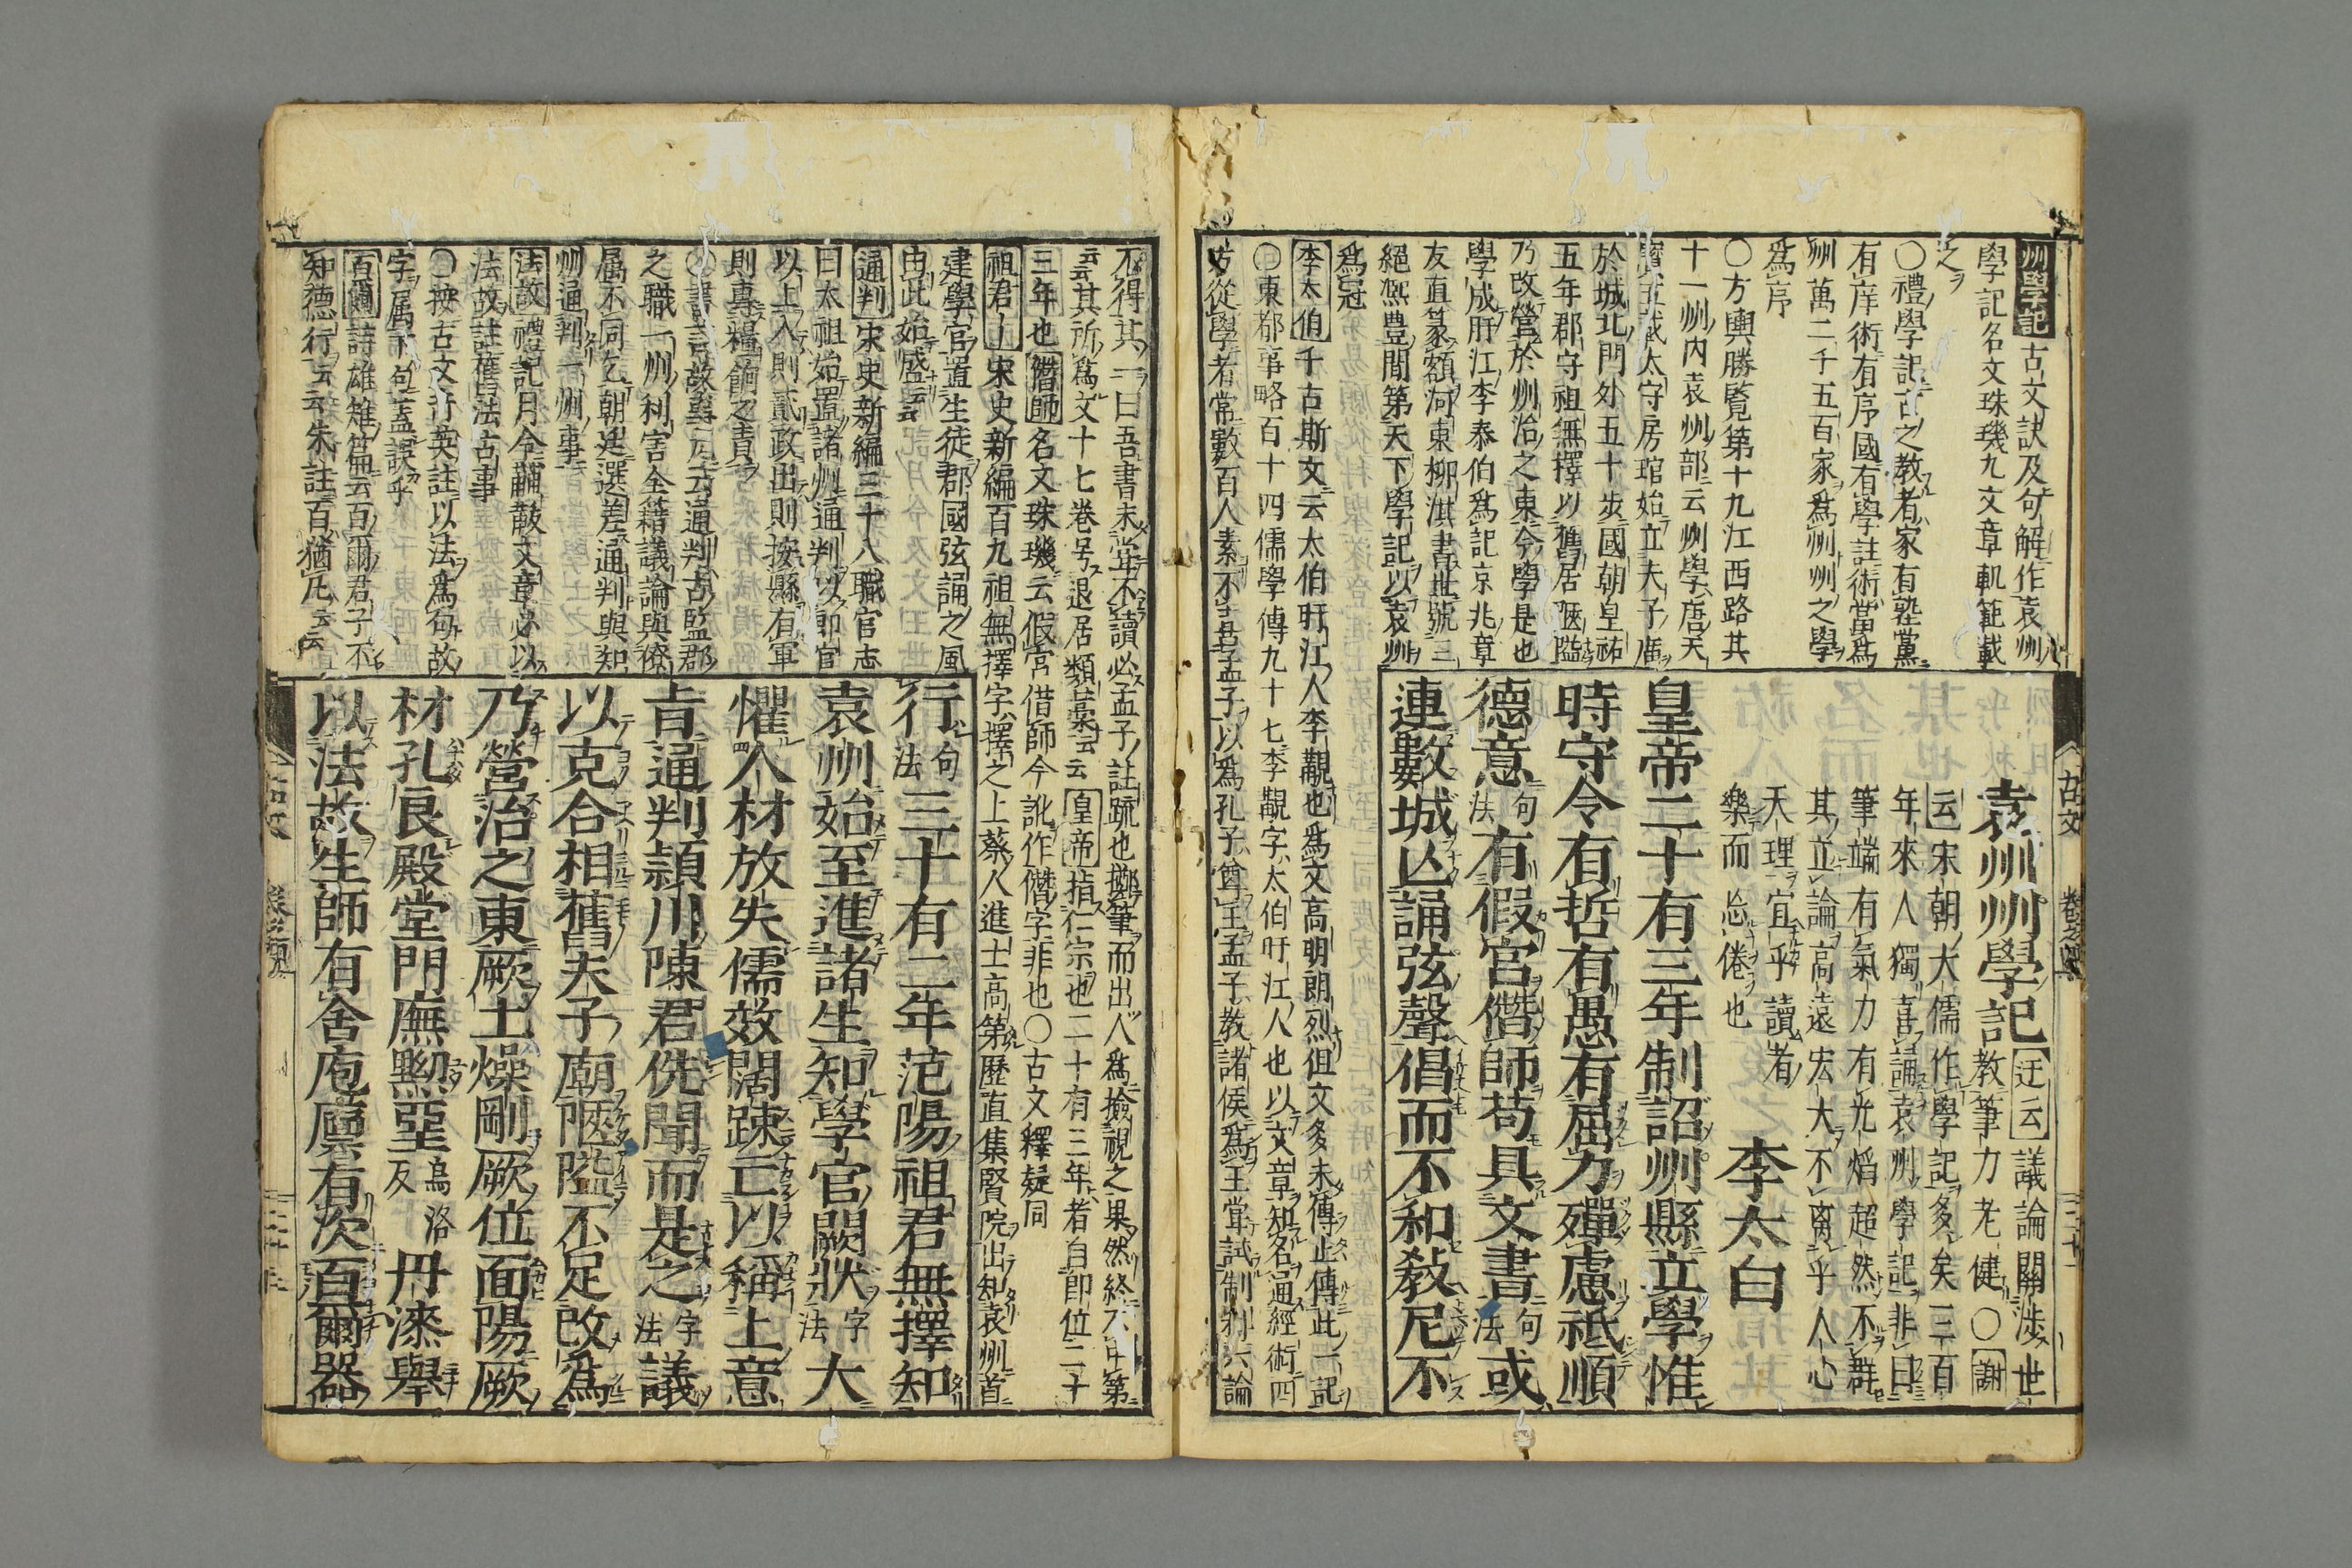 州學記 古文訣及句解作袁州
學記名文珠璣九文章軌範載
之
〇禮學記古之教者家有塾黨
有庠術有序國有學註術當爲
州萬二千五百家爲州州之學
爲序
〇方輿勝覧第十九江西路其
十一州内袁州部云州學唐天
寶五載太守房琯始立夫子廟
於城北門外五十歩國朝皇祐
五年郡守祖無擇以舊居陋隘
乃改營於州治之東今學是也
學成盱江李泰伯爲記京兆章
友直篆額河東柳淇書世號三
絕熙豊間第天下學記以袁州
爲冠
李太伯 千古斯文云太伯盱江人李覯也爲文高明朗烈但文多未傳止傳此一記
〇東都事略百十四儒學傳九十七李覯字太伯盱江人也以文章知名通經術四
方從學者常數百人素不喜孟子以爲孔子尊王孟子教諸侯爲王嘗試制科六論
袁州州學記 迂云 議論關渉世
教筆力老健〇謝
云宋朝大儒作學記多矣三百
年來人獨喜誦袁州學記非曰
筆端有氣力有光焰超然不群
其立論高遠宏大不离乎人心
天理宜乎讀者
樂而忘倦也
李太白
皇帝二十有三年制詔州縣立學惟
時守令有哲有愚有屈力殫慮祗順
德意句法有假官僭師苟具文書句法或
連數城亾誦弦聲倡而不和教尼不
不得其一曰吾書未嘗不讀必孟子註疏也擲筆而出人爲撿視之果然終不中第
云云其所爲文十七巻号退居類藁云云 皇帝 指仁宗也二十有三年者自即位二十
三年也 僭師 名文珠璣云假官借師今訛作僭字非也〇古文釋疑同
祖君 宋史新編百九祖無擇字擇之上蔡人進士高第歴直集賢院出知袁州首
建學官置生徒郡國弦誦之風
由此始盛云云
通判 宋史新編三十八職官志
曰太祖始置諸州通判以郎官
以上入則貳政出則按縣有軍
則專糧餉之責
〇書言故事云通判古監郡
之職一州利害全藉議論與僚
属不同乞朝廷選差通判與知
州通判一州事
法故 禮記月令黼黻文章必以
法故註舊法古事
〇按古文行英註以法爲句故
字属下句蓋誤乎
百爾 詩雄雉篇云百爾君子不
知德行云云朱註百猶凡云云
行句法三十有二年范陽祖君無擇知
袁州始至進諸生知學官闕狀字法大
懼人材放失儒效闊踈亡以稱上意
㫖通判頴川陳君侁聞而是之字法議
以克合相舊夫子廟陋隘不足改爲
乃營治之東厥土燥剛厥位面陽厥
材孔良殿堂門廡黝堊烏洛反丹漆舉
以法故生師有舍庖廩有次百爾器
古文 巻之四